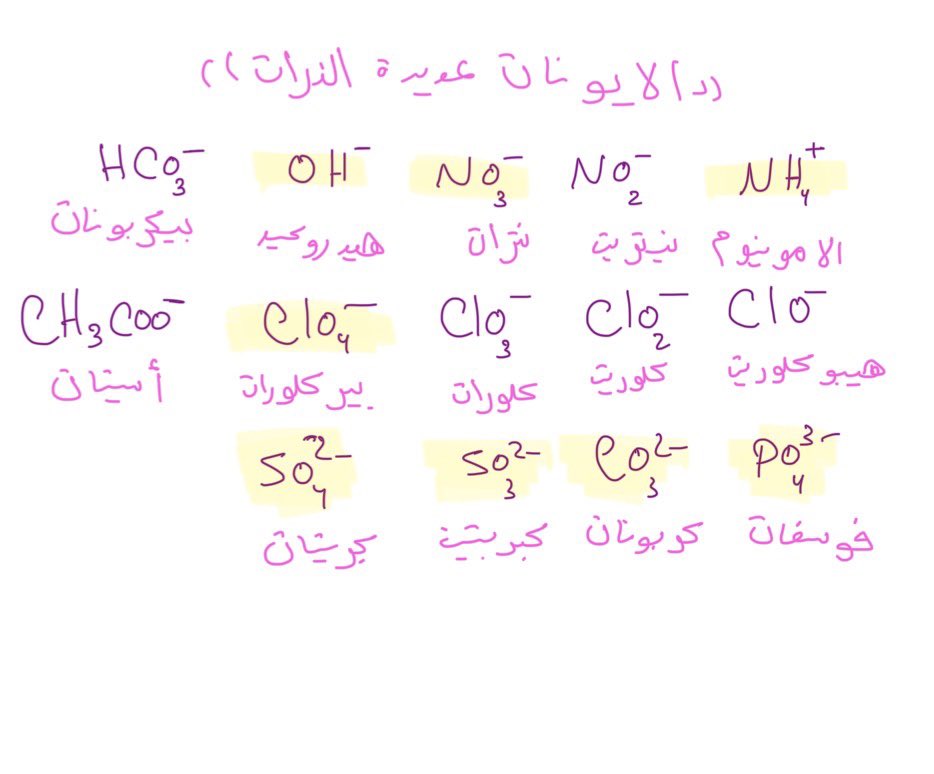 ((الايونات عديدة الذرات))
NH₄⁺ NO₂⁻ NO₃⁻ OH⁻ HCO₃⁻
الامونيوم نيتريت نترات هيدروكسيد بيكربونات
ClO⁻ ClO₂⁻ ClO₃⁻ ClO₄⁻ CH₃COO⁻
هيبو كلوريت كلوريت كلورات بير كلورات أسيتات
PO₄³⁻ CO₃²⁻ SO₃²⁻ SO₄²⁻
فوسفات كربونات كبريتيت كبريتات